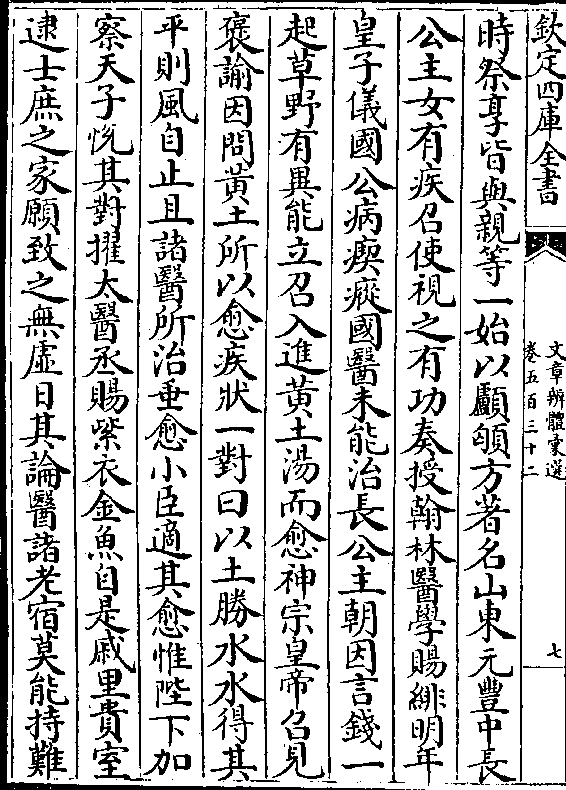 欽定四庫全書
文章辨體彙選
卷五百三十二
七
時祭享皆與親等一始以顱䪿方著名山東元豐中長
公主女有疾召使視之有功奏授翰林醫學賜緋明年
皇子儀國公病瘈瘲國醫未能治長公主朝因言錢一
起草野有異能立召入進黃土湯而愈神宗皇帝召見
褒諭因問黃土所以愈疾狀一對曰以土勝水水得其
平則風自止且諸醫所治垂愈小臣適其愈惟陛下加
察天子悅其對擢太醫丞賜紫衣金魚自是戚里貴室
逮士庶之家願致之無虛日其論醫諸老宿莫能持難